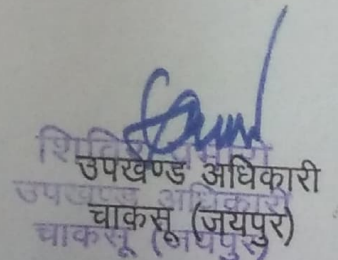 उपखण्ड अधिकारी
चाकसू (जयपुर)
उपखण्ड अधिकारी
चाकसू (जयपुर)